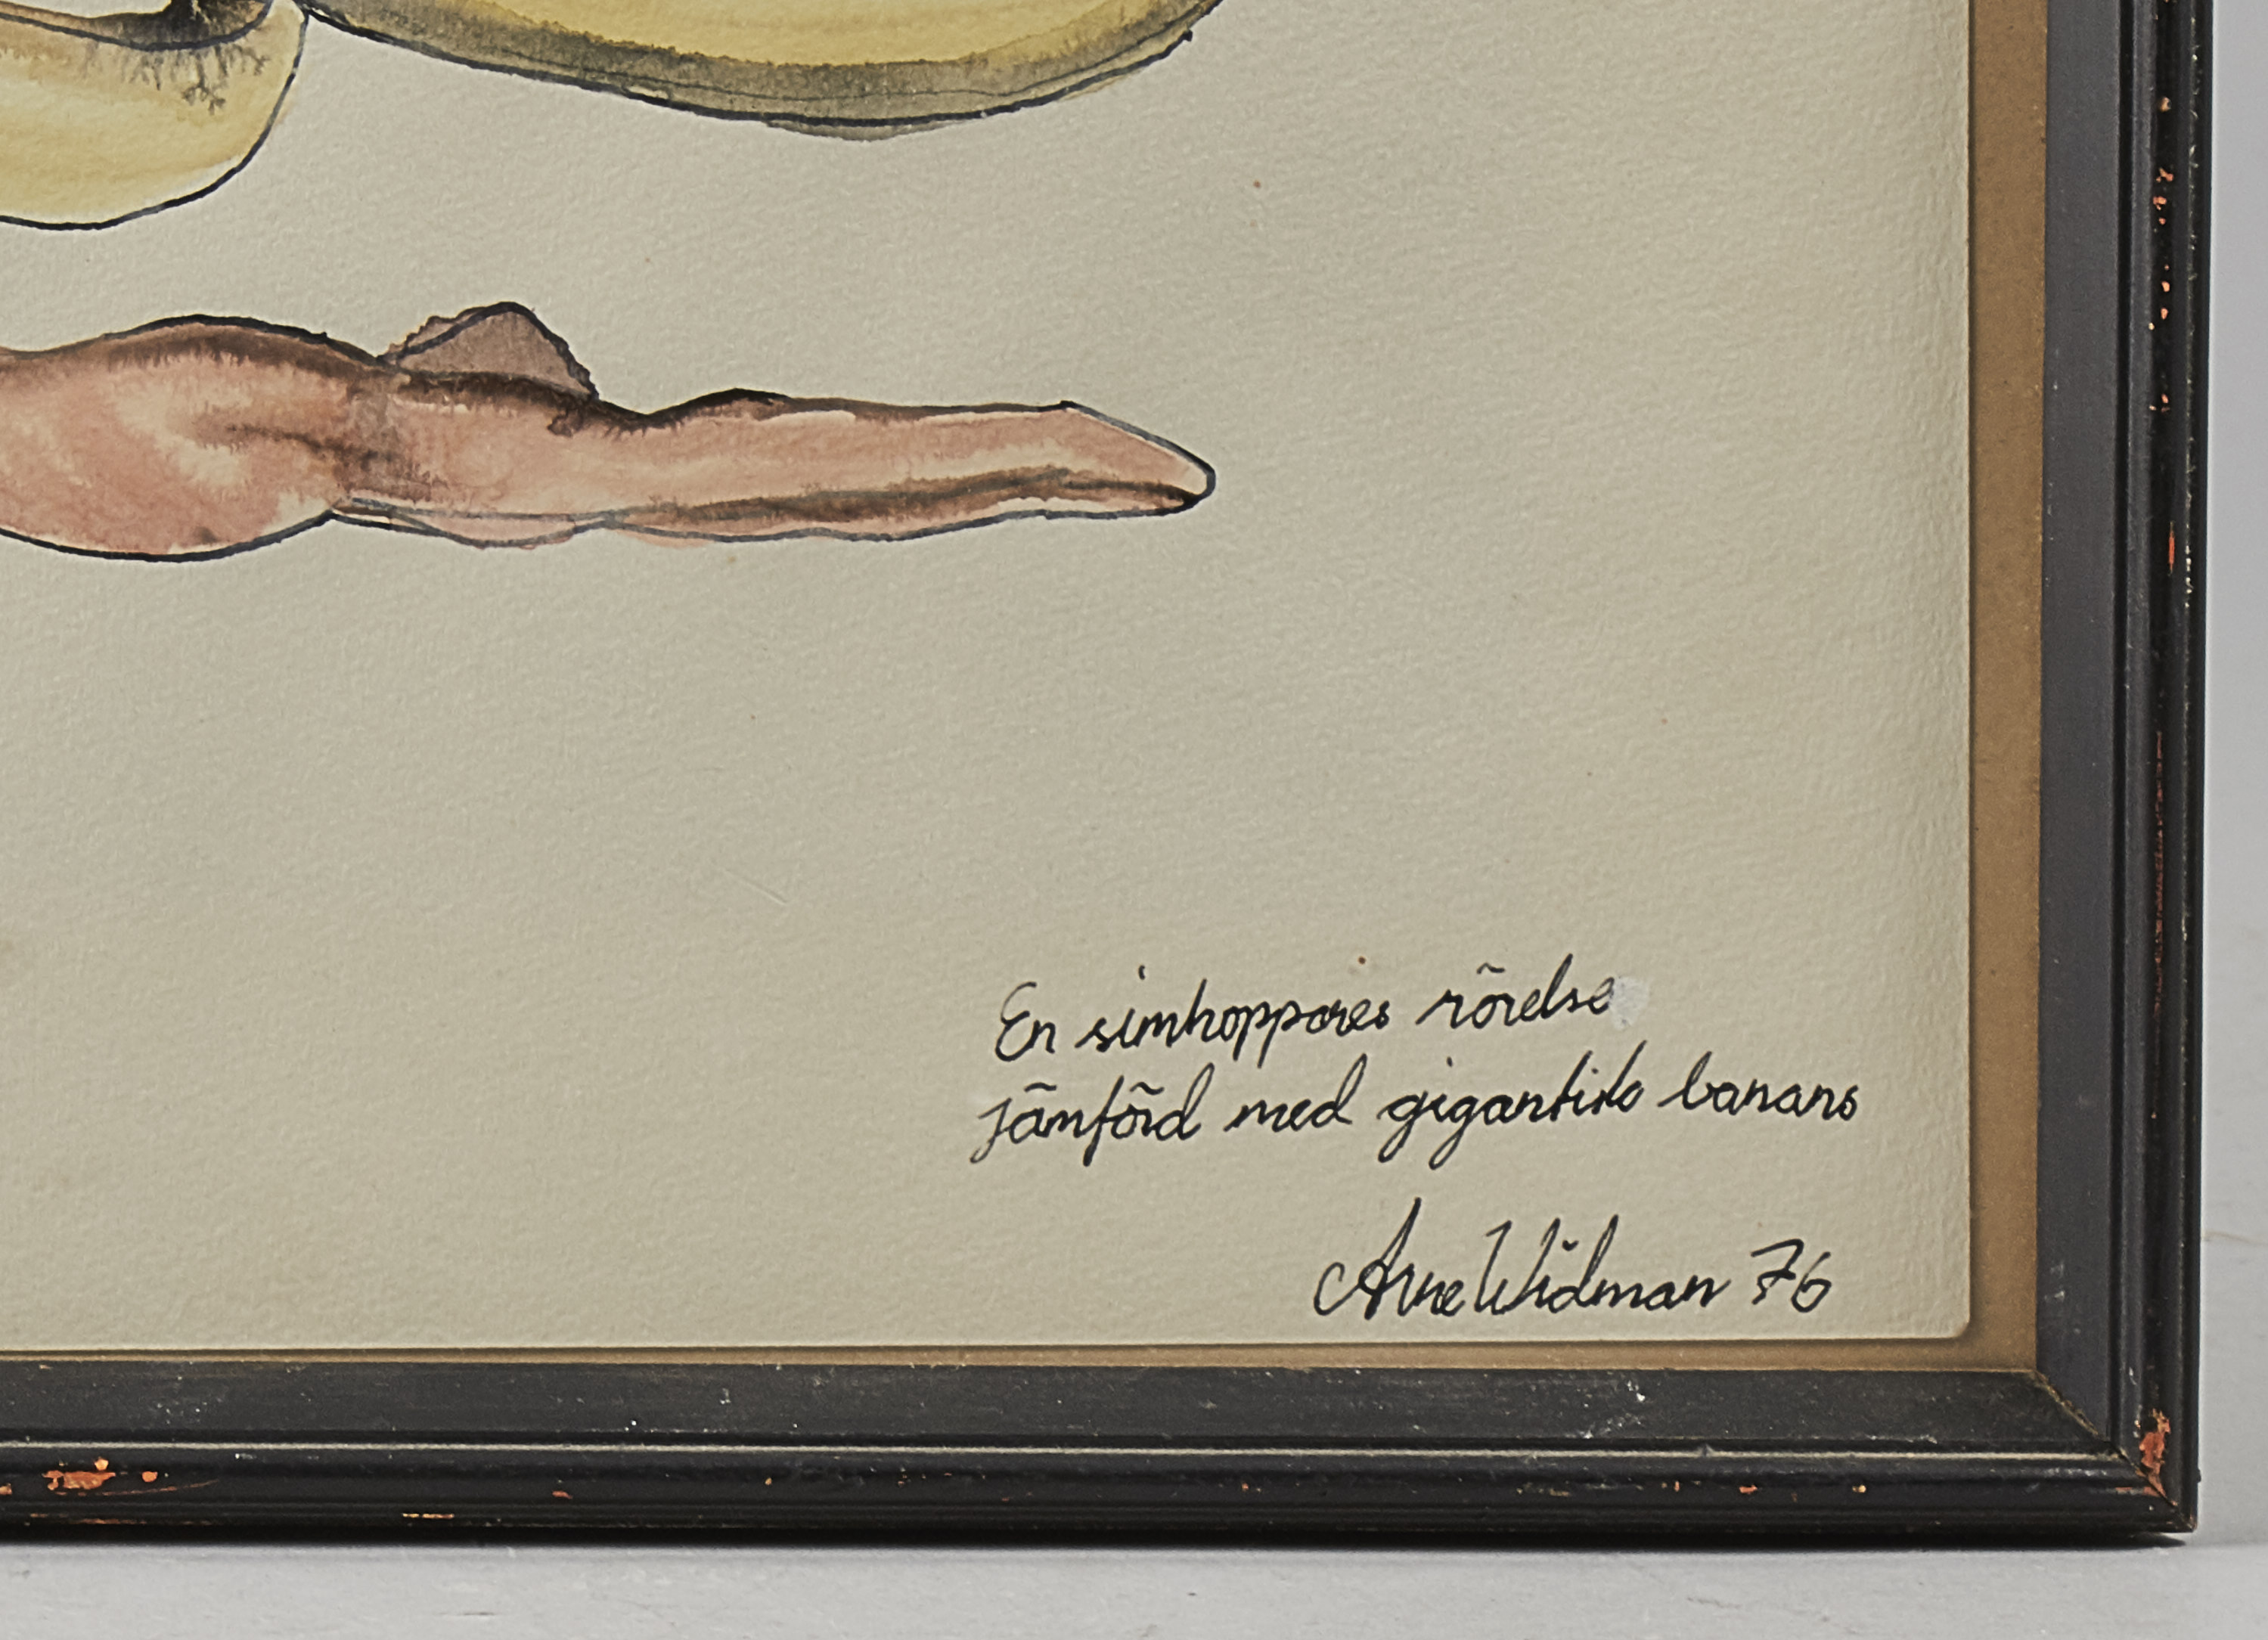 En simhoppares rörelse
jämförd med gigantisk banans
Arne Widman 76